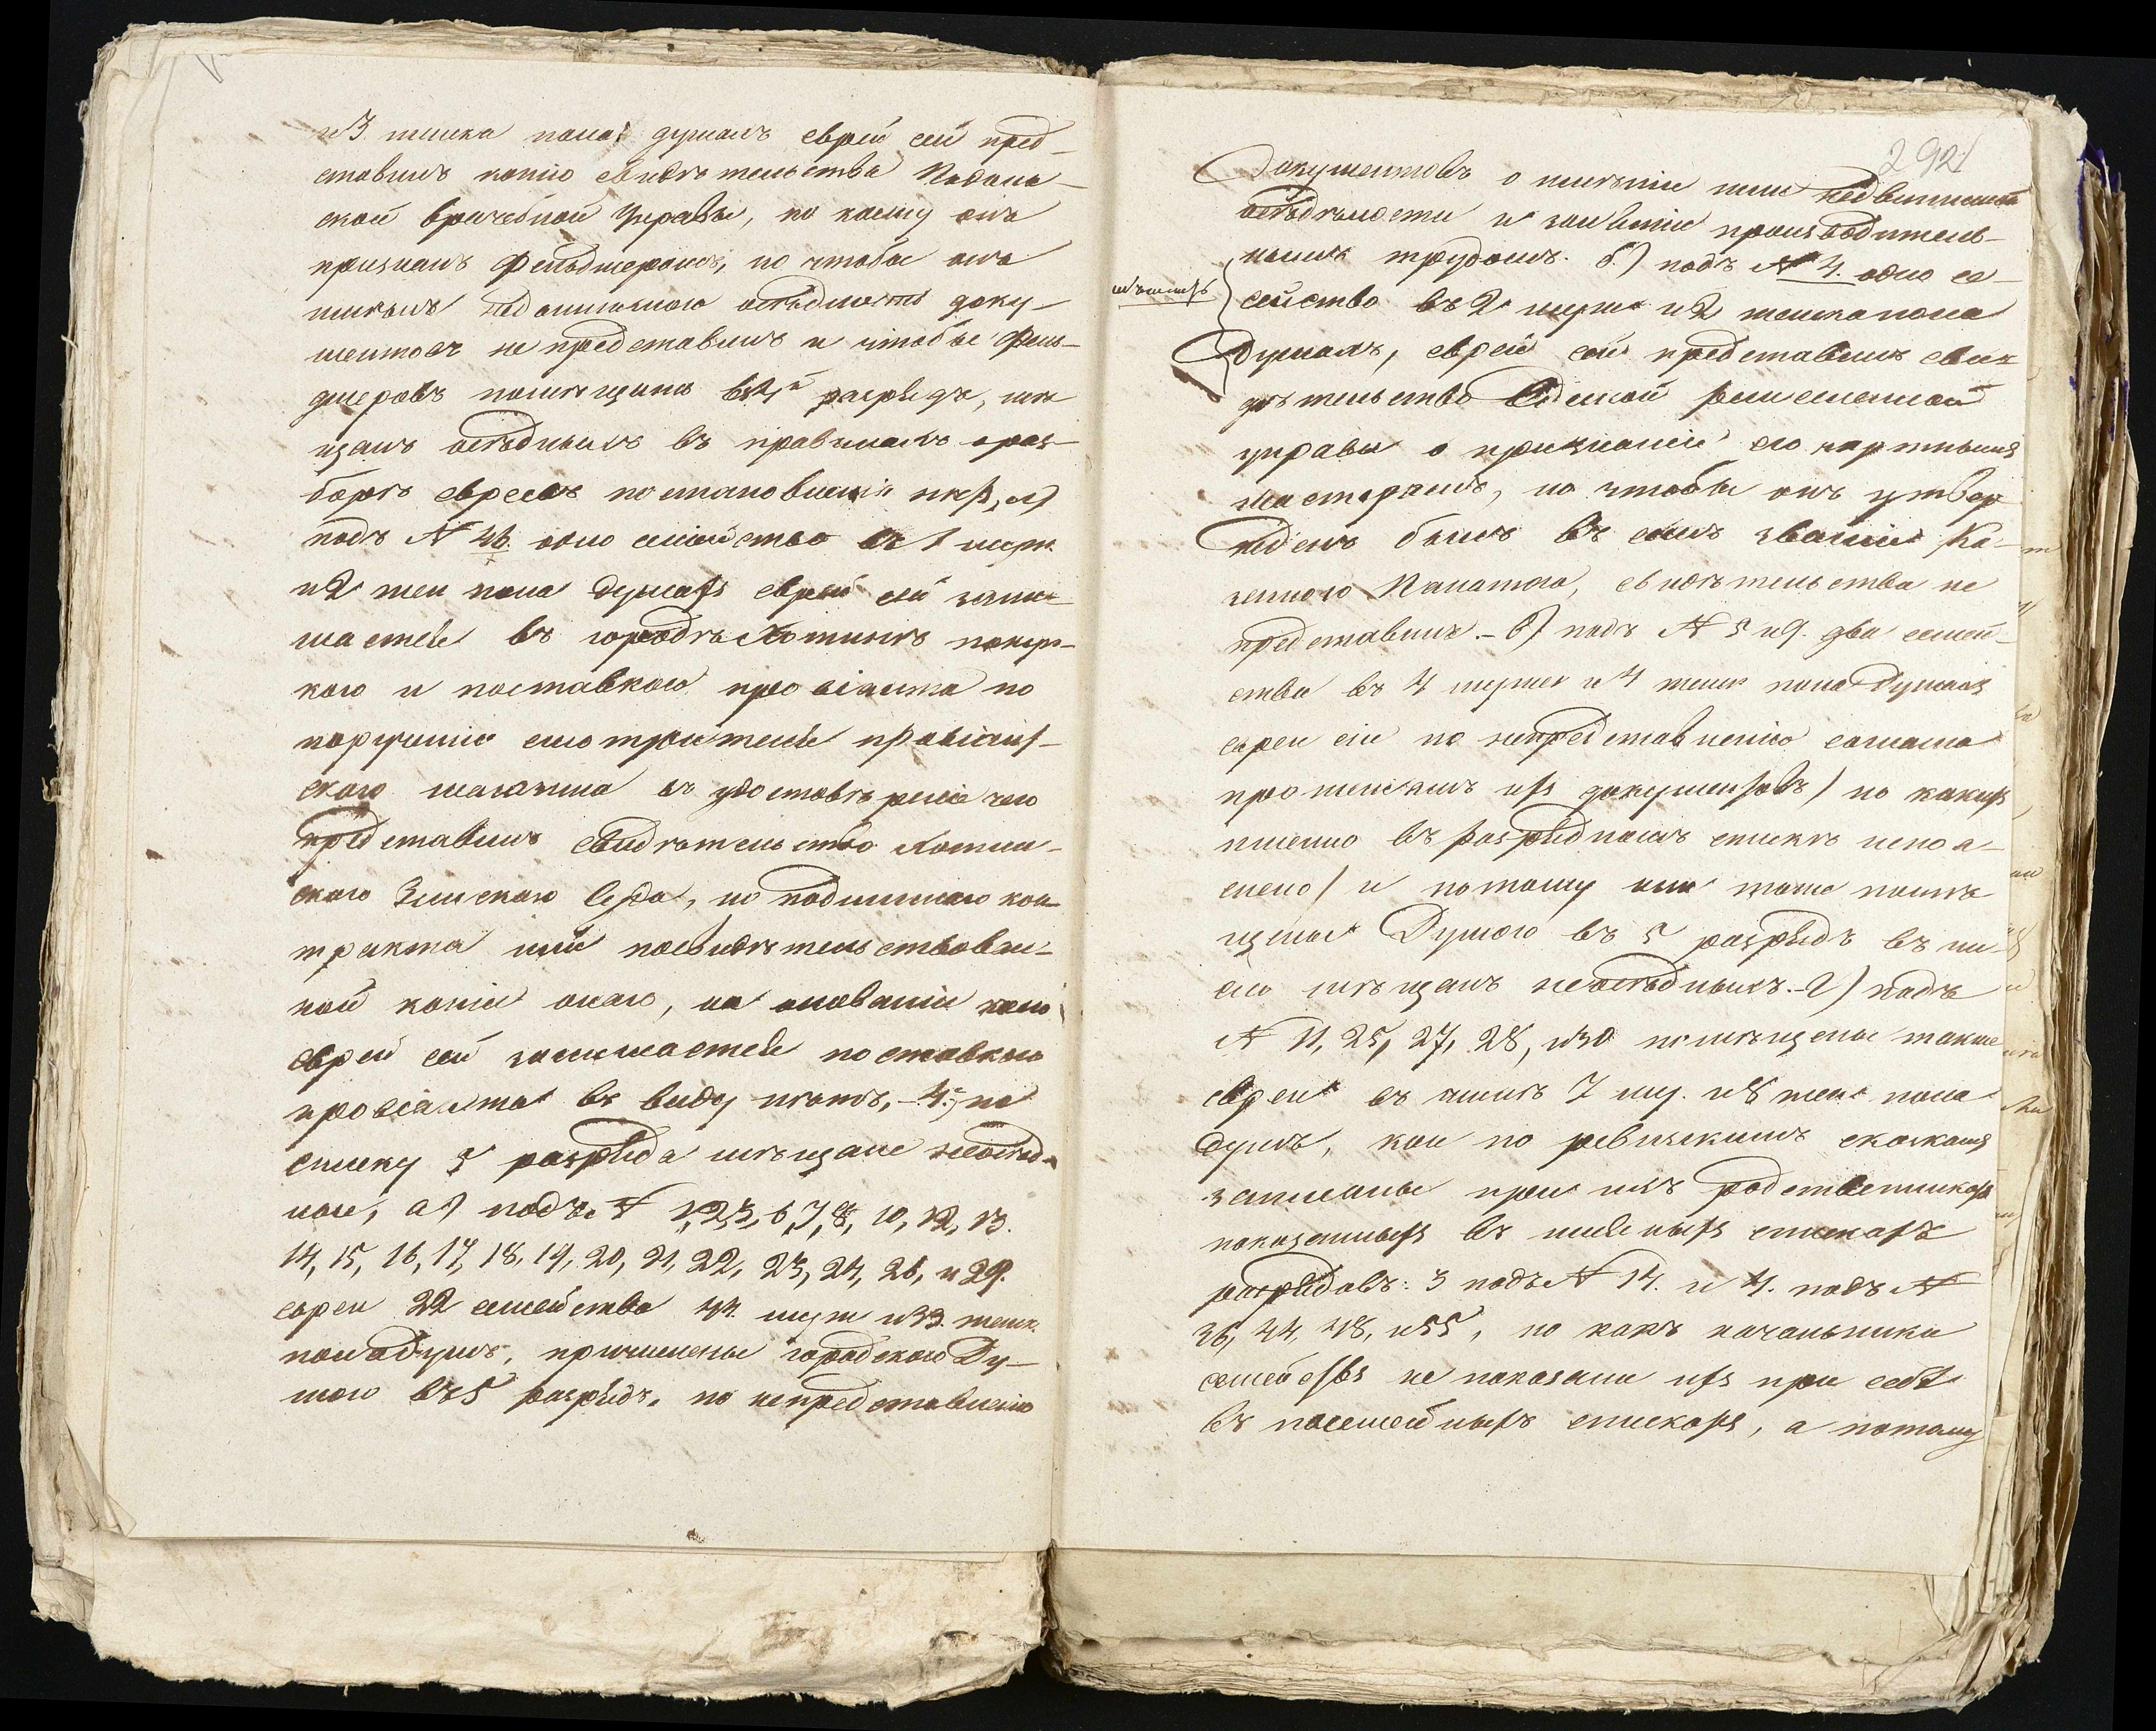 и 3 женска пола душамъ еврей сей пред-
ставилъ копію свидѣтельства Подоль-
ской врачебной Управы, по коему онъ
признанъ Фельдшеромъ, но чтобы онъ
имѣлъ недвижимою осѣдлость доку-
ментовъ не представилъ и чтобы Фель-
дшеровъ помѣщать въ 4й разрядъ, мѣ
щанъ осѣдлыхъ въ правилахъ о раз-
борѣ евреевъ постановленія нѣтъ,
подъ № 46. одно семейство въ 1 муж.
и 2 жен пола душахъ еврей сей зани-
мается въ городѣ Хотинѣ покуп-
кою и поставкою провіанта по
порученію смотрителя провіант-
скаго магазина въ удостовѣреніе чего
представилъ свидѣтельство Хотин-
скаго Земскаго Суда, но подлиннаго кон
тракта или посвидѣтельствован-
ной копіи онаго, на основаніи коего
еврей сей занимается поставкою
провіанта въ виду нѣтъ, - 4.) по
списку 5 разряда мѣщане неосѣд-
лые, а) подъ № 1, 2, 3, 6, 7, 8, 10, 12, 13.
14, 15, 16, 17, 18, 19, 20, 21, 22, 23, 24, 26, и 29.
евреи 22 семейства 44. муж и 33. женск.
пола душъ, причислены городскою Ду-
мою въ 5 разрядъ, по непредставленію
292
Документовъ о имѣніи ими недвижимой
осѣдлости и занятіи производитель-
нымъ трудомъ. б.) подъ № 4. одно се-
мейство въ 2 муж и 2 женска пола
Душахъ, еврей сей представилъ свид
дѣтельство Одеской ремесленной
управы о признаніи его портнымъ
мастеромъ, но чтобы онъ утвер
жденъ былъ въ семъ званіи Ка-
зенною Палатою, свидѣтельства не
представилъ. - в) подъ № 5 и 9. два семей-
ства въ 4 мужск и 4 женск пола Душахъ
евреи сіи по непредставленію согласно
прошеніямъ ихъ документовъ / по какимъ
именно въ разрядномъ спискѣ непоя-
снено / и потому они тоже помѣ
щены Думою въ 5 разрядъ въ чи-
сло мѣщанъ неосѣдлыхъ. - г) подъ
№ 11, 25, 27, 28, и 30 помѣщены также
евреи въ числѣ 7 му. и 8 жен. пола
душъ, кои по ревизскимъ сказкамъ
записаны при ихъ родственникахъ
показанныхъ въ списках
разрядовъ: 3 подъ № 14. и 4. подъ №
36, 44, 48, и 55, но какъ начальники
семействъ не показали ихъ при себѣ
въ посемейныхъ спискахъ, а потому